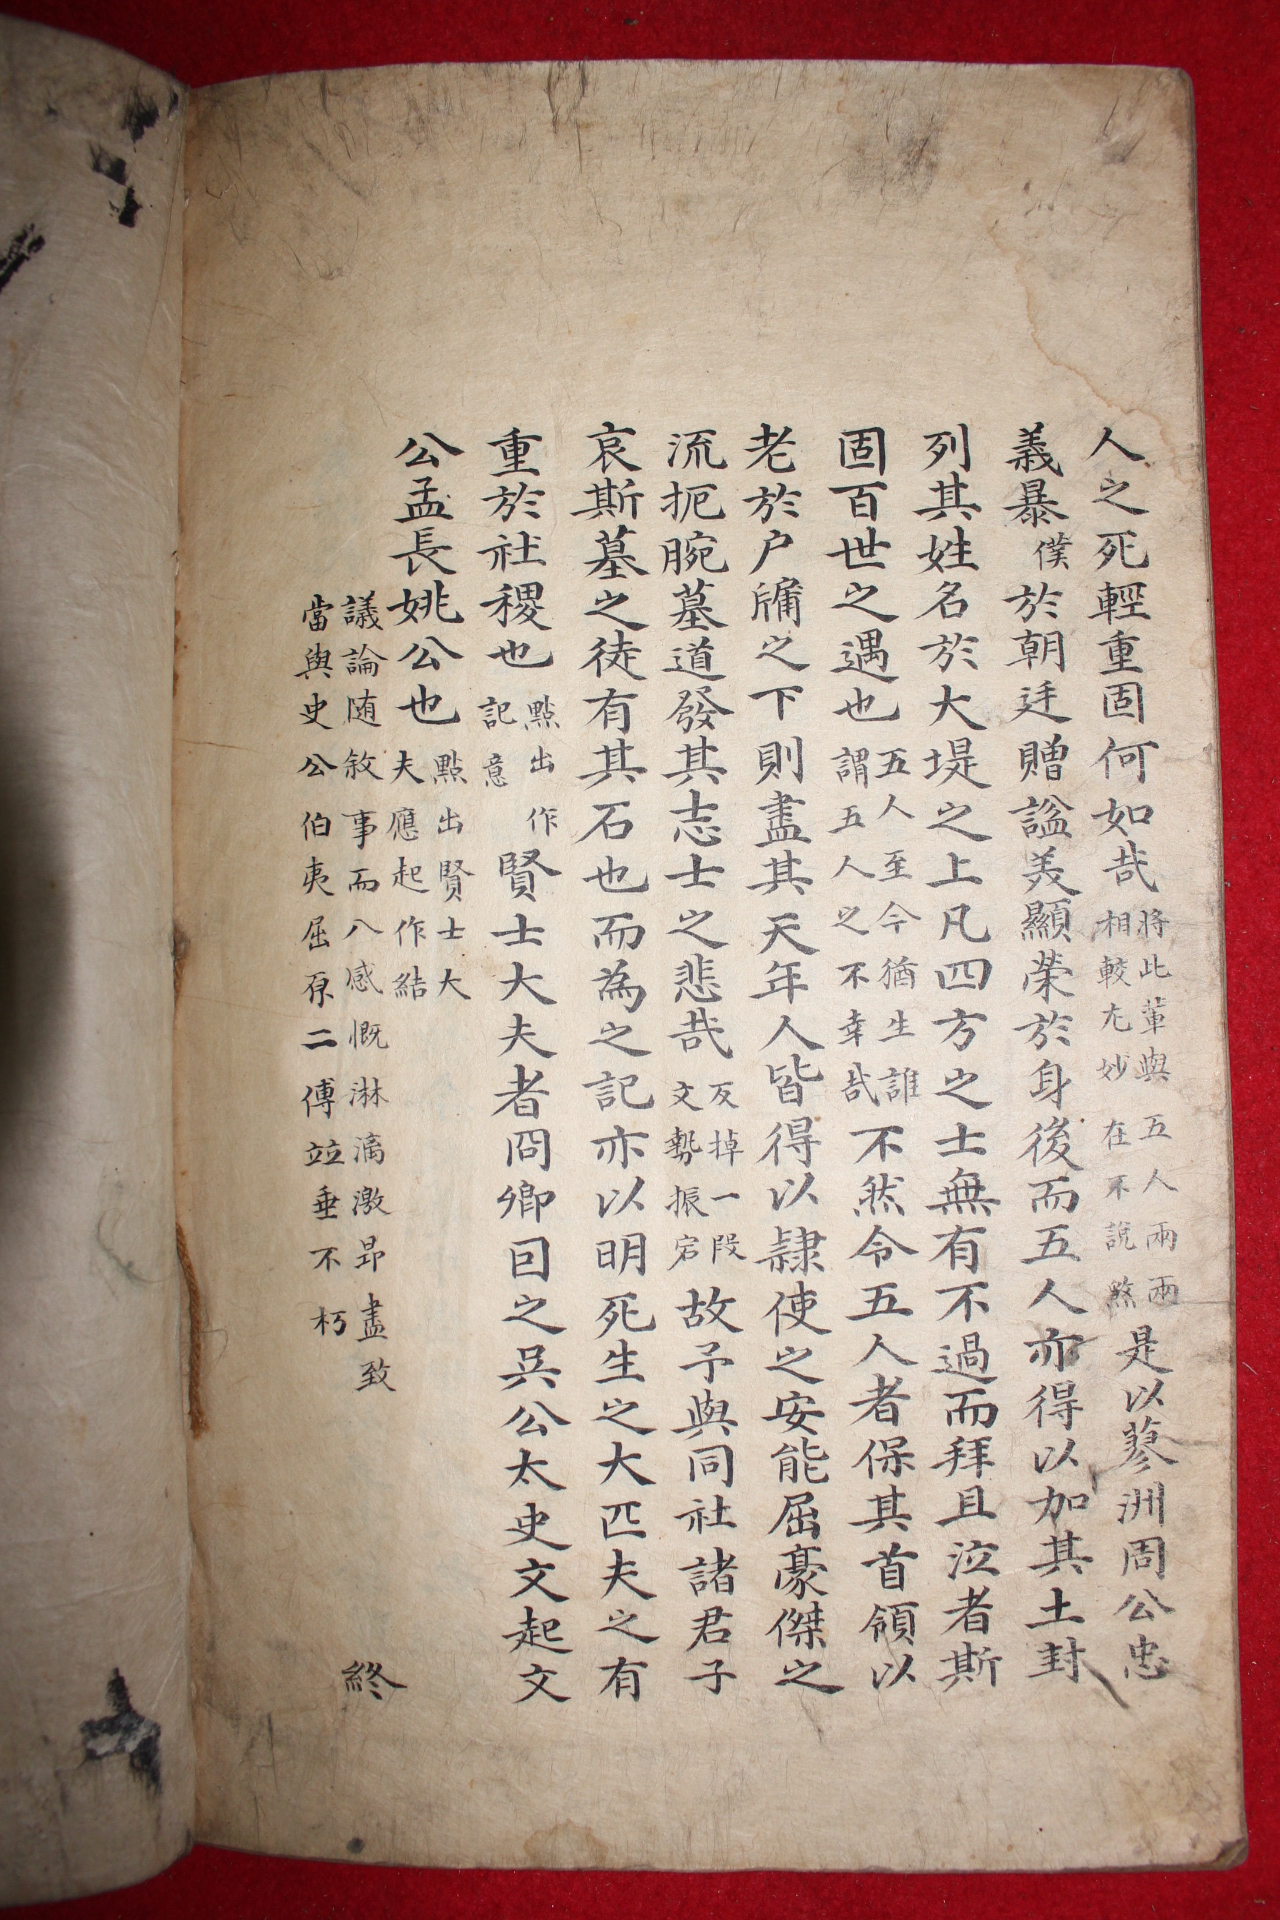 人之死輕重固何如哉將此輩與五人兩兩相較尤妙在不說煞是以蓼洲周公忠
義暴僕於朝廷贈諡美顯榮於身後而五人亦得以加其土封
列其姓名於大堤之上凡四方之士無有不過而拜且泣者斯
固百世之遇也五人至今猶生誰謂五人之不幸哉不然令五人者保其首領以
老於户牖之下則盡其天年人皆得以隷使之安能屈豪傑之
流扼腕墓道發其志士之悲哉反掉一段文勢振宕故予與同社諸君子
哀斯墓之徒有其石也而為之記亦以明死生之大匹夫之有
重於社稷也點出作記意賢士大夫者冏卿囙之吳公太史文起文
公孟長姚公也點出賢士大夫應起作結
議論随敘事而八感慨淋漓激昂盡致
當與史公伯夷屈原二傅竝垂不朽
終